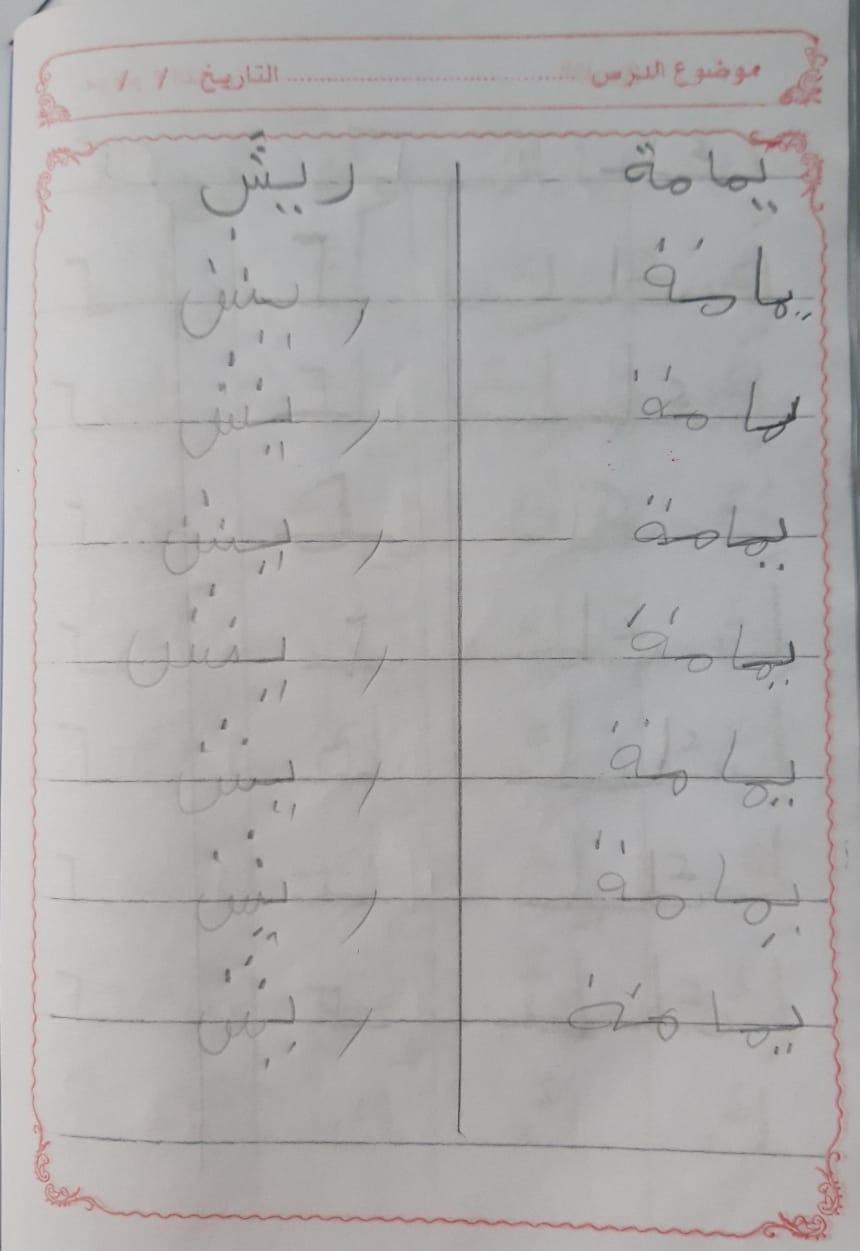 موضوع الدرس ........................ التاريخ / /
يمامة ريش
يمامة ريش
مامة ريش
يمامة ريش
يمامة ريش
يمامة ريش
يمامة ريش
يمامة ريش